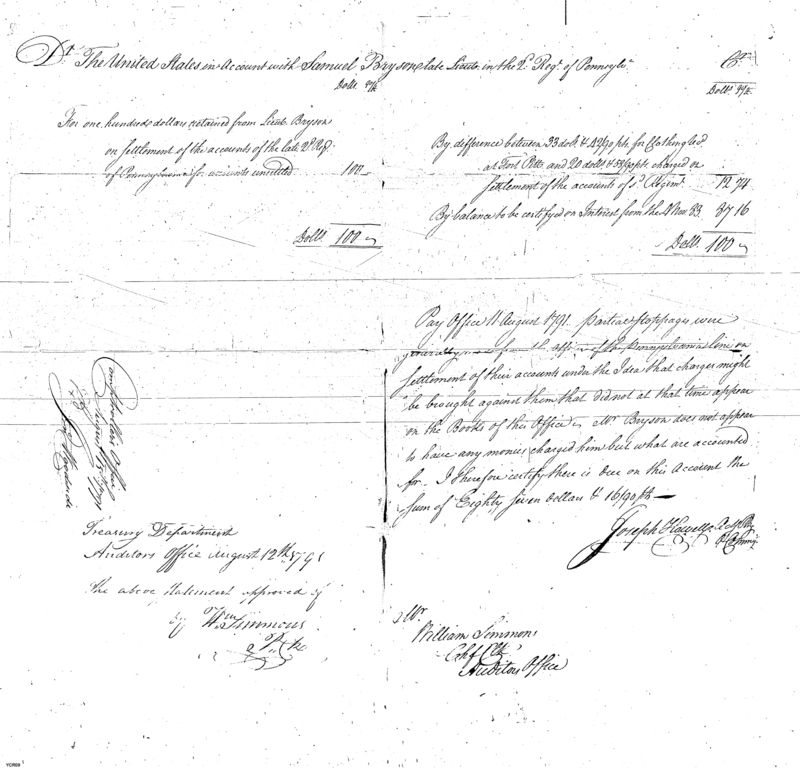 Dr. The United States in Account with Samuel Bryson late Lieut. in the 2d. Regt. of Pennsylva. Cr.
Dolls. 90ths
Dolls. 90ths
For one hundred dollars retained from Lieut. Bryson
on settlement of the accounts of the late 2d Regt.
of Pennsylvania for accounts unsettled 100
Dolls. 100
By difference between 33 dolls & 42/90 pts. for Clothing
at Fort Pitt and 20 dolls & 58/90 pts. charged on
settlement of the accounts of sd. Regimt. 12 74
By balance to be certified on Interest from the 4 Nov 83 87 16
Dolls. 100
Pay Office 11 August 1791. partial stoppages were
generally made from the officers of the Pennsylvania line on
settlement of their accounts under the Idea that charges might
be brought against them that did not at that time appear
on the Books of this Office. Mr. Bryson does not appear
to have any monies charged him but what are accounted
for. I therefore certify there is due on this Account the
sum of Eighty seven dollars & 16/90 pts.
Joseph Howell
Comptrollers Office
August 1791
Treasury Department
Auditors Office August 12th 1791
The above statement approved of
by Wm. Simmons
Mr.
William Simmons
Chf Clk
Auditors Office
YCR09